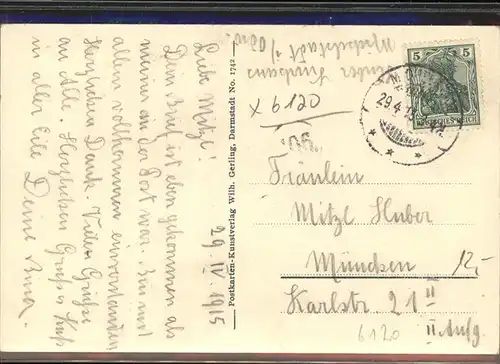 Liebe Mitzl!
Dein Brief ist eben gekommen als
meiner in der Post war. Bin mit
allem vollkommen einverstanden
Herzlichen Dank. Viele Grüße
an Alle. Herzlichen Gruß u. Kuß
in aller Eile Deine
29. IV. 1915
Postkarten-Kunstverlag Wilh. Gerling, Darmstadt No. 1742
x 6120
5 5
29.4.
DEUTSCHES REICH
Fräulein
Mitzl Huber
München
Karlstr. 21 II
II Aufg.
12,-
6120